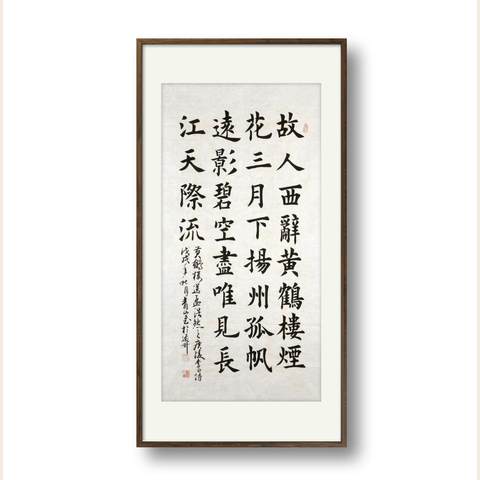 故人西辭黄鶴樓煙
花三月下揚州孤帆
遠影碧空盡唯見長
江天際流
黄鶴樓送孟浩然之廣陵李白詩
戊戌年秋月